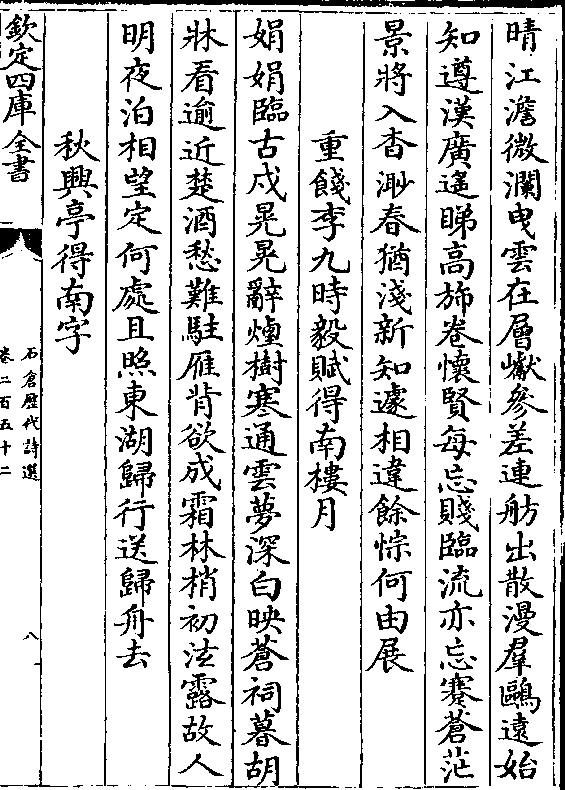 晴江澹微瀾曳雲在層巘參差連舫出散漫羣鷗遠始
知遵漢廣遙睇高斾卷懷賢每忘賤臨流亦忘蹇蒼茫
景將入杳渺春猶淺新知遽相違餘悰何由展
重餞李九時毅賦得南樓月
娟娟臨古戍晃晃辭煙樹寒通雲夢深白映蒼祠暮胡
牀看逾近楚酒愁難駐雁背欲成霜林梢初泫露故人
明夜泊相望定何處且照東湖歸行送歸舟去
秋興亭得南字
欽定四庫全書
石倉歷代詩選
卷二百五十二
八